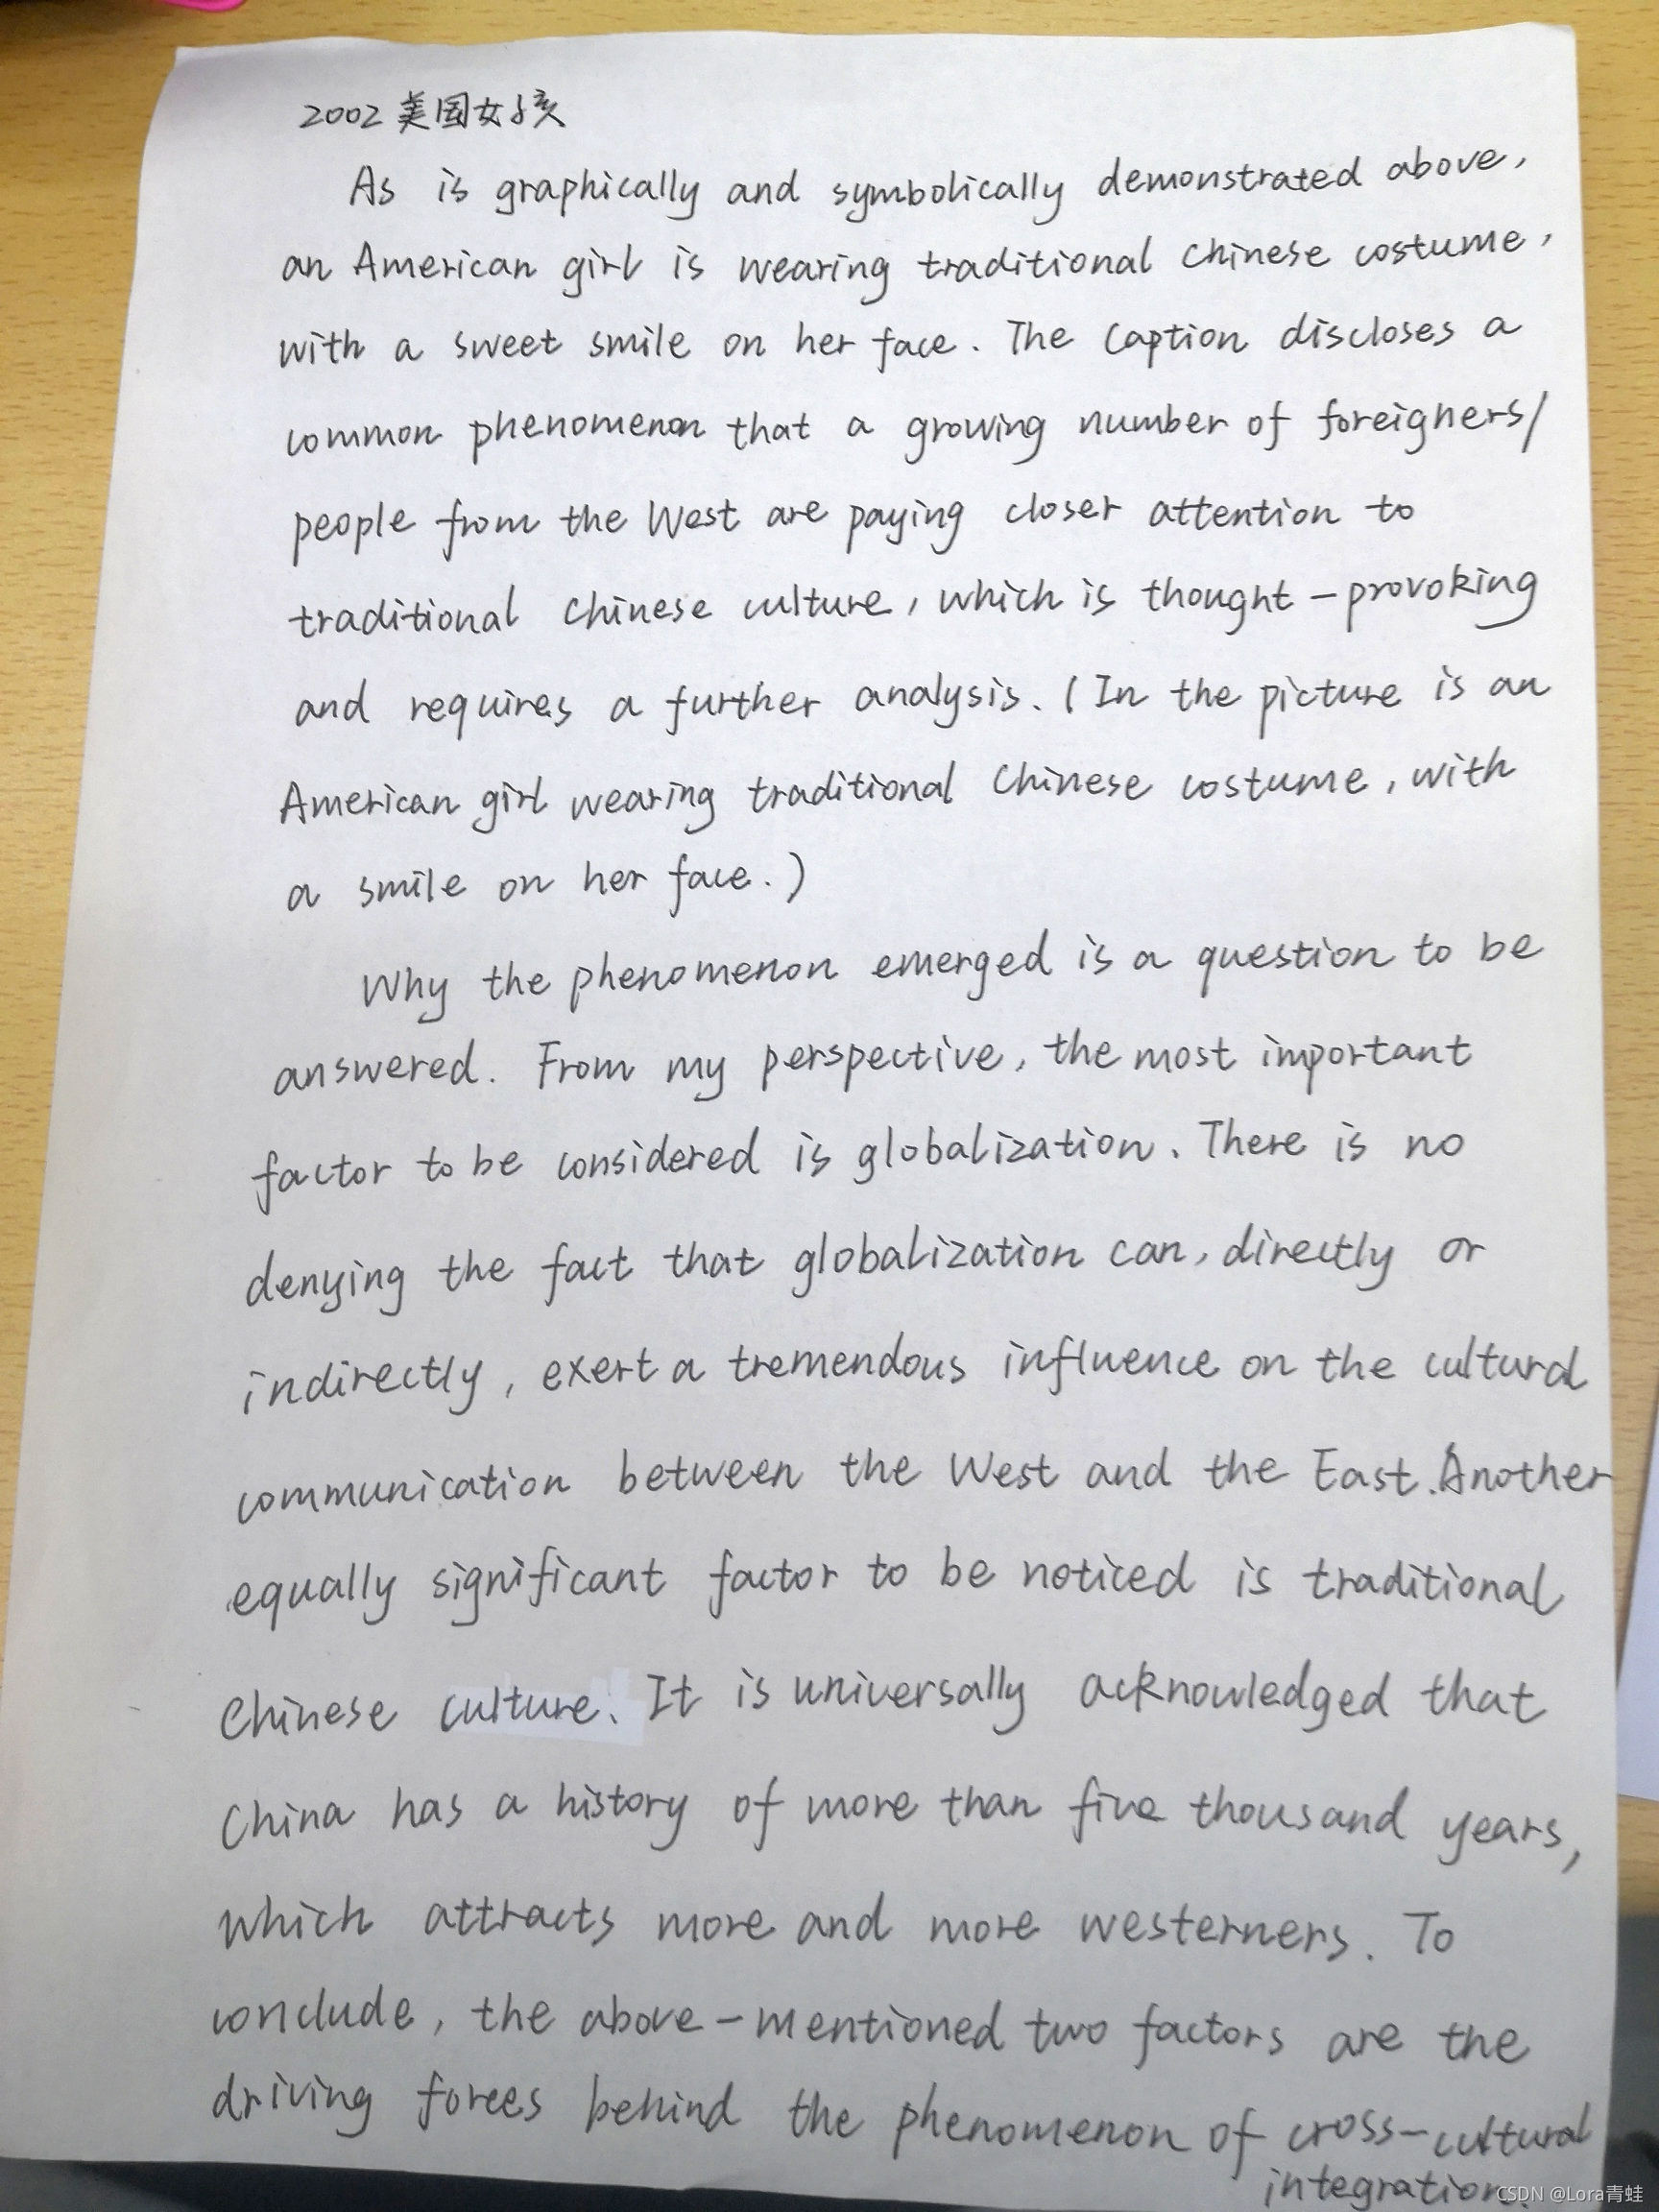 2002 美国女孩
As is graphically and symbolically demonstrated above,
an American girl is wearing traditional Chinese costume,
with a sweet smile on her face. The Caption discloses a
common phenomenon that a growing number of foreigners/
people from the West are paying closer attention to
traditional Chinese culture, which is thought-provoking
and requires a further analysis. (In the picture is an
American girl wearing traditional Chinese costume, with
a smile on her face.)
Why the phenomenon emerged is a question to be
answered. From my perspective, the most important
factor to be considered is globalization. There is no
denying the fact that globalization can, directly or
indirectly, exert a tremendous influence on the cultural
communication between the West and the East. Another
equally significant factor to be noticed is traditional
Chinese culture. It is universally acknowledged that
China has a history of more than five thousand years,
which attracts more and more westerners. To
conclude, the above-mentioned two factors are the
driving forces behind the phenomenon of cross-cultural
integration.
CSDN @Lora青蛙